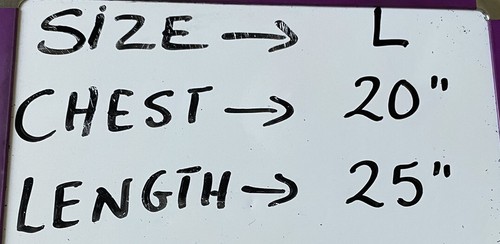 SIZE → L
CHEST → 20"
LENGTH → 25"